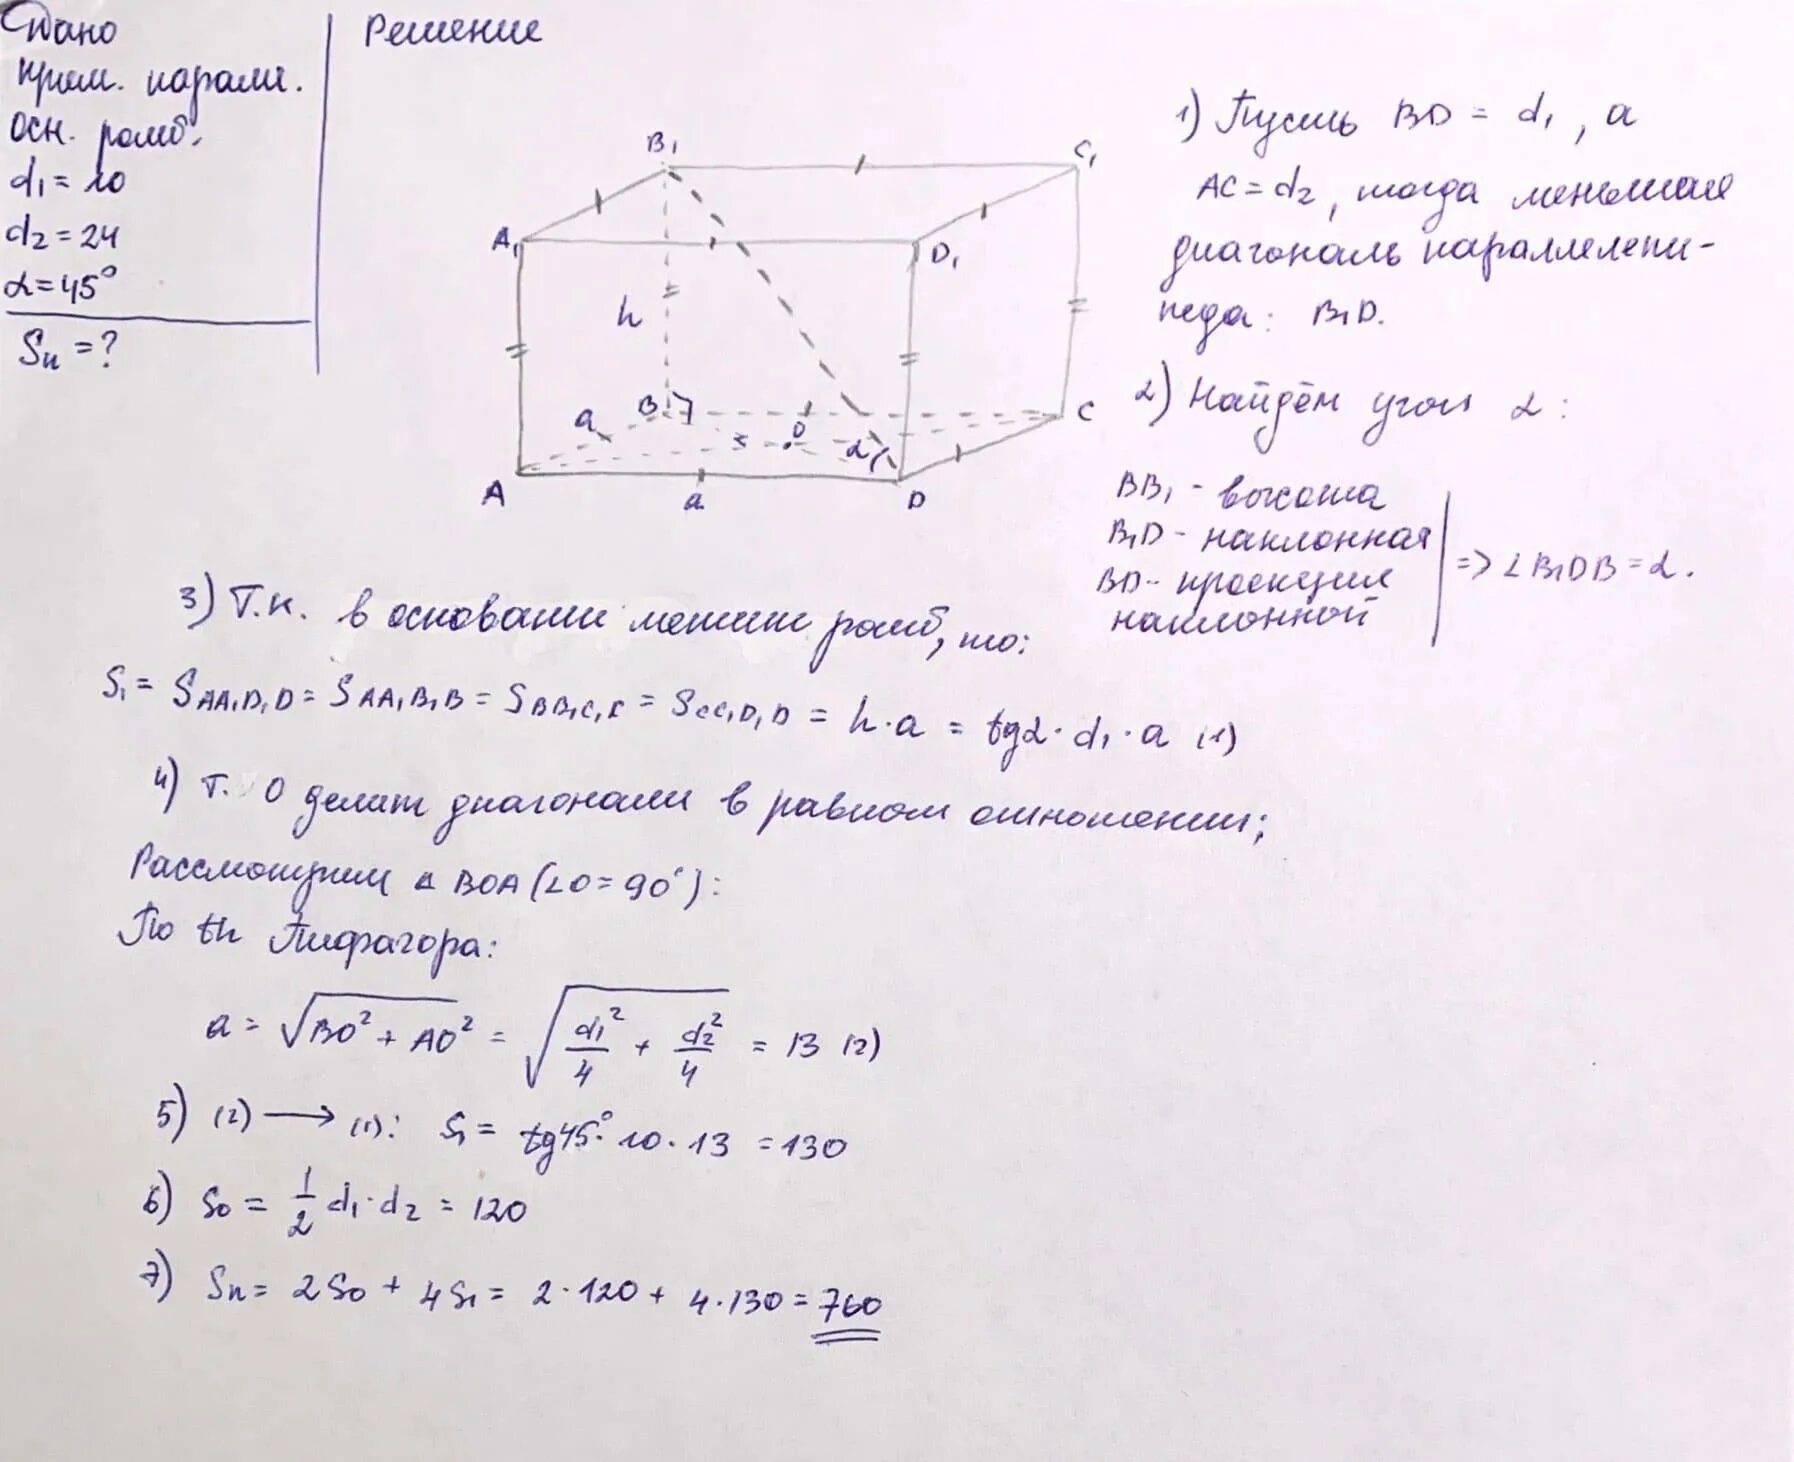 Дано
прям. паралл.
осн. ромб.
d₁ = 10
d₂ = 24
α = 45°
Sп = ?
Решение
B₁
C₁
A₁
D₁
h
a
B
O
α
C
A
a
D
1) Пусть BD = d₁, а
AC = d₂, тогда меньшая
диагональ параллелепи-
педа: B₁D.
2) Найдём угол α:
BB₁ - высота
B₁D - наклонная
BD - проекция
наклонной
=> ∠B₁DB = α.
3) Т.к. в основании лежит ромб, то:
S₁ = S AA₁D₁D = S AA₁B₁B = S BB₁C₁C = S CC₁D₁D = h·a = tgα·d₁·a (1)
4) т. O делит диагонали в равном отношении;
Рассмотрим △ BOA (∠O = 90°):
По th Пифагора:
a = √(BO² + AO²) = √(d₁²/4 + d₂²/4) = 13 (2)
5) (2) → (1): S₁ = tg45°·10·13 = 130
6) S₀ = 1/2 d₁·d₂ = 120
7) Sп = 2S₀ + 4S₁ = 2·120 + 4·130 = 760